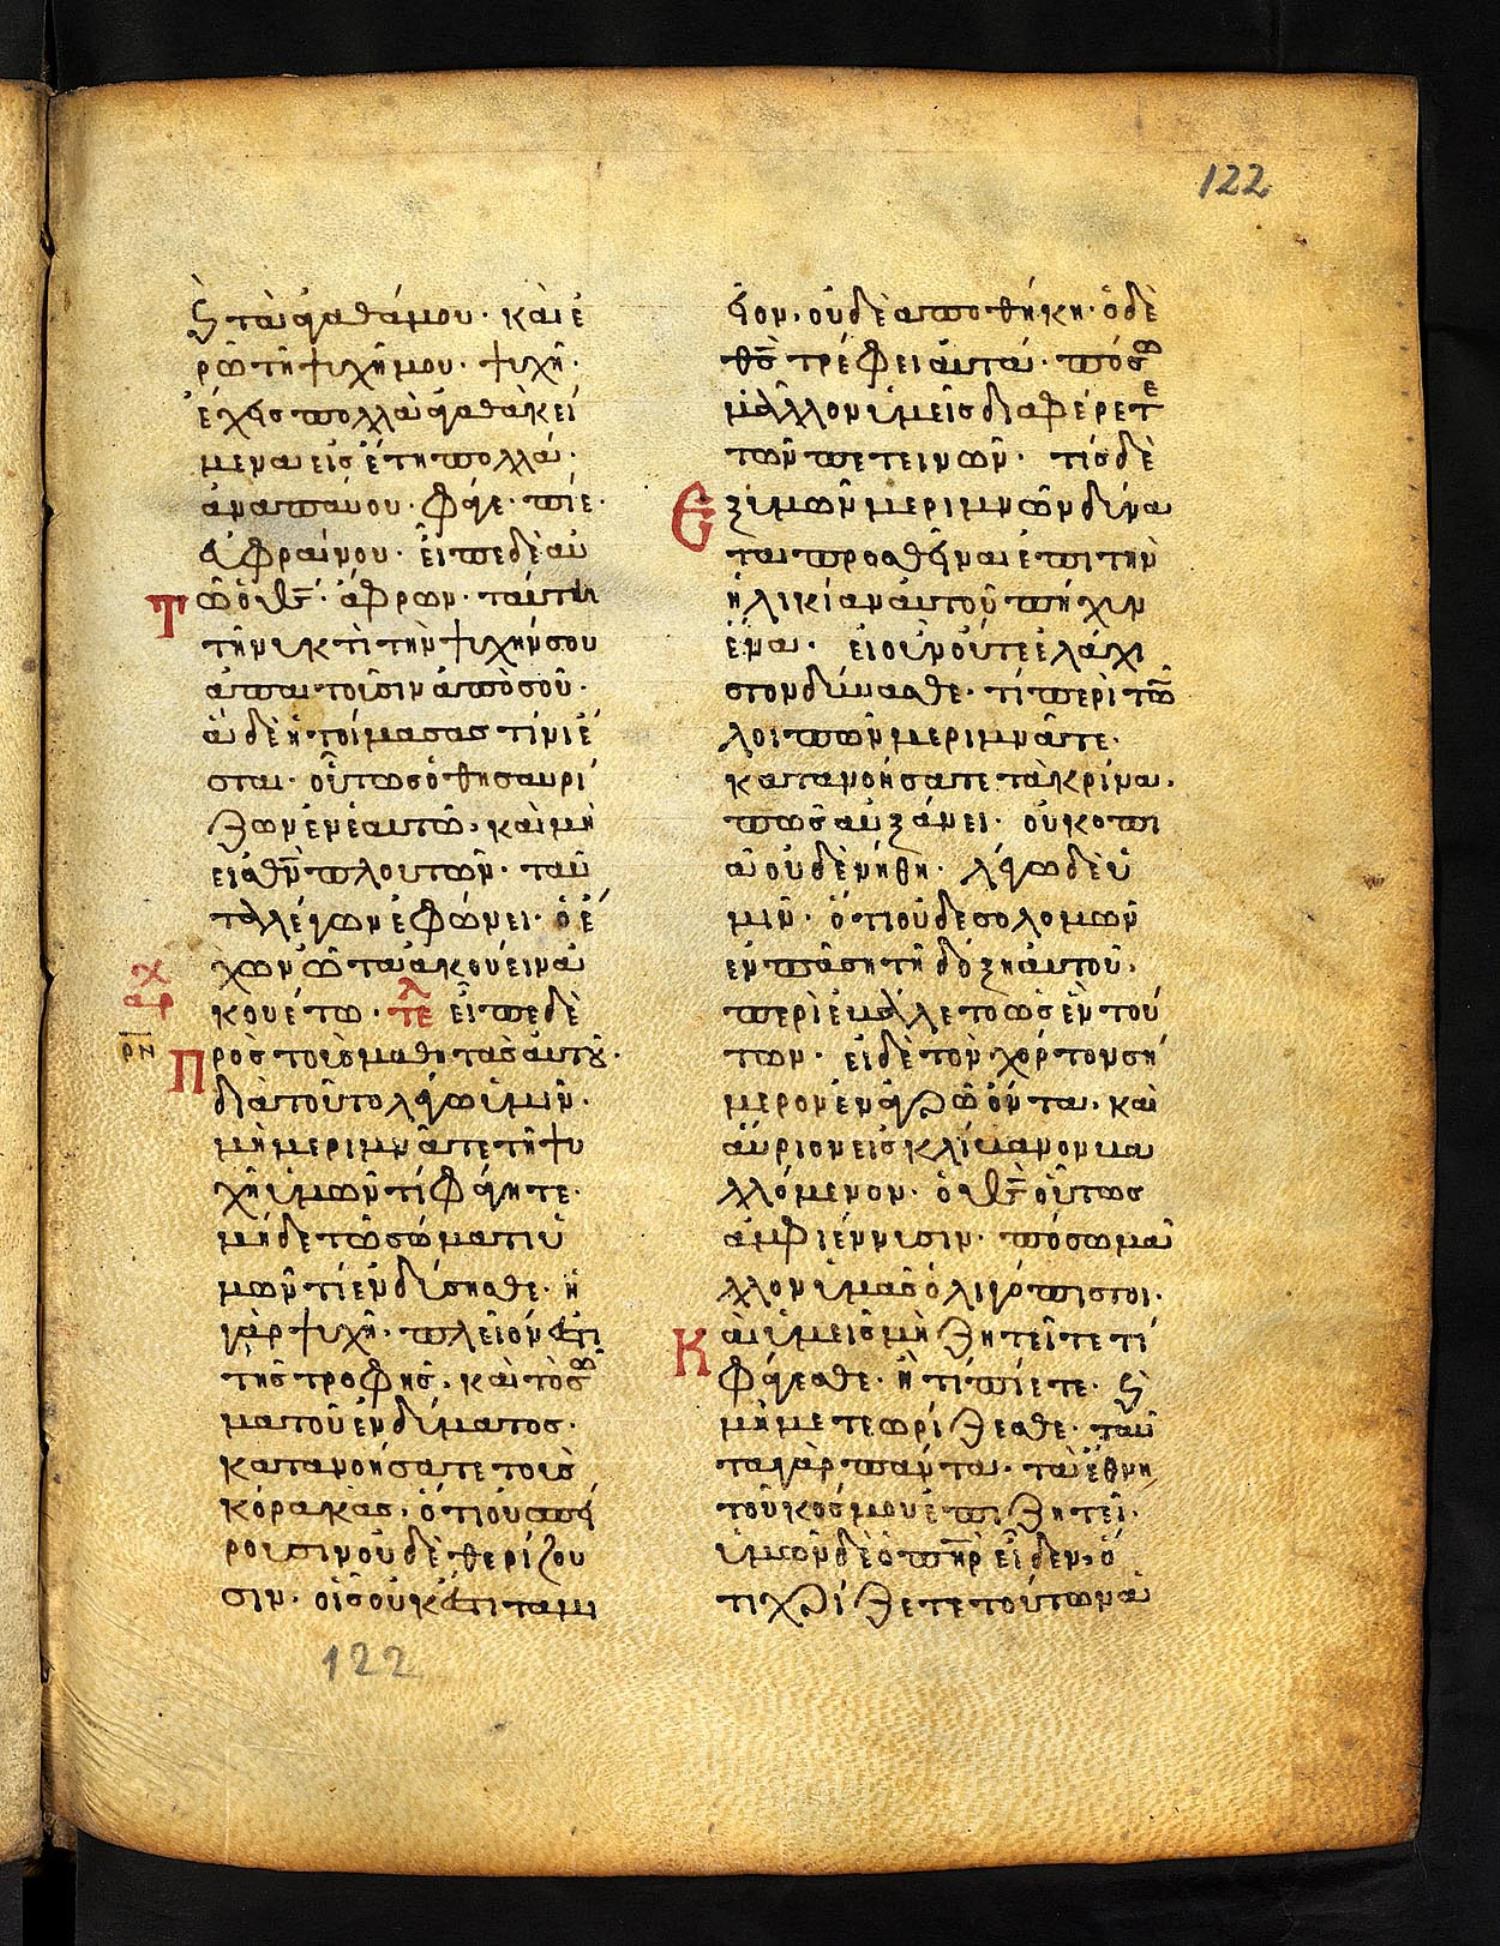 122
ϗ τὰ ἀγαθά μου· καὶ ἐ
ρῶ τῆ ψυχῆ μου· ψυχὴ·
ἔχεις πολλὰ ἀγαθὰ κεί
μενα εἰς ἔτη πολλά·
ἀναπαύου· φάγε· πίε·
εὐφραίνου· εἶπε δὲ αὐ
Τῶ ὁ θς· ἄφρων· ταύτη
τῆ νυκτὶ τὴν ψυχήν σου
ἀπαιτοῦσιν ἀπὸ σοῦ·
ἃ δὲ ἡτοίμασας τίνι ἔ
σται· οὕτως ὁ θησαυρί
ζων ἐν ἑαυτῶ· καὶ μὴ
εἰς θν πλουτῶν· ταῦ
τα λέγων ἐφώνει· ὁ ἔ
χων ὦτα ἀκούειν ἀ
χ
αρ
κουέτω· τελ εἶπε δὲ
ρν
Πρὸς τοὺς μαθητὰς αὐτοῦ·
διὰ τοῦτο λέγω ὑμῖν·
μὴ μεριμνᾶτε τῆ ψυ
χῆ ὑμῶν τί φάγητε·
μηδὲ τῶ σώματι ὑ
μῶν τί ἐνδύσησθε· ἡ
γὰρ ψυχὴ· πλεῖόν ἐστι
τῆς τροφῆς· καὶ τὸ σω
μα τοῦ ἐνδύματος·
κατανοήσατε τοὺς
κόρακας· ὅτι οὐ σπεί
ρουσιν οὐδὲ θερίζου
σιν· οἷς οὐκ ἔστι ταμι
εῖον· οὐδὲ ἀποθήκη· ὁ δὲ
θς τρέφει αὐτά· πόσω
μᾶλλον ὑμεῖς διαφέρετε
τῶν πετεινῶν· τίς δὲ
Εξ ὑμῶν μεριμνῶν δύνα
ται προσθεῖναι ἐπὶ τὴν
ἡλικίαν αὐτοῦ πῆχυν
ἕνα· εἰ οὖν οὔτε ἐλάχι
στον δύνασθε· τί περὶ τῶν
λοιπῶν μεριμνᾶτε·
κατανοήσατε τὰ κρίνα·
πῶς αὐξάνει· οὐ κοπι
ᾶ οὐδὲ νήθη· λέγω δὲ ὑ
μῖν· ὅτι οὐδὲ σολομῶν
ἐν πάση τῆ δόξη αὐτοῦ·
περιεβάλλετο ὡς ἓν τού
των· εἰ δὲ τὸν χόρτον σή
μερον ἐν ἀγρῶ ὄντα· καὶ
αὔριον εἰς κλίβανον βα
λλόμενον· ὁ θς οὕτως
ἀμφιέννυσιν· πόσω μᾶ
λλον ὑμᾶς ὀλιγόπιστοι·
Καὶ ὑμεῖς μὴ ζητεῖτε τί
φάγεσθε· ἢ τί πίετε· ϗ
μὴ μετεωρίζεσθε· ταῦ
τα γὰρ πάντα· τὰ ἔθνη
τοῦ κόσμου ἐπιζητεῖ·
ὑμῶν δὲ ὁ πηρ εἶδεν· ὅ
τι χρήζετε τούτων ἁ
122